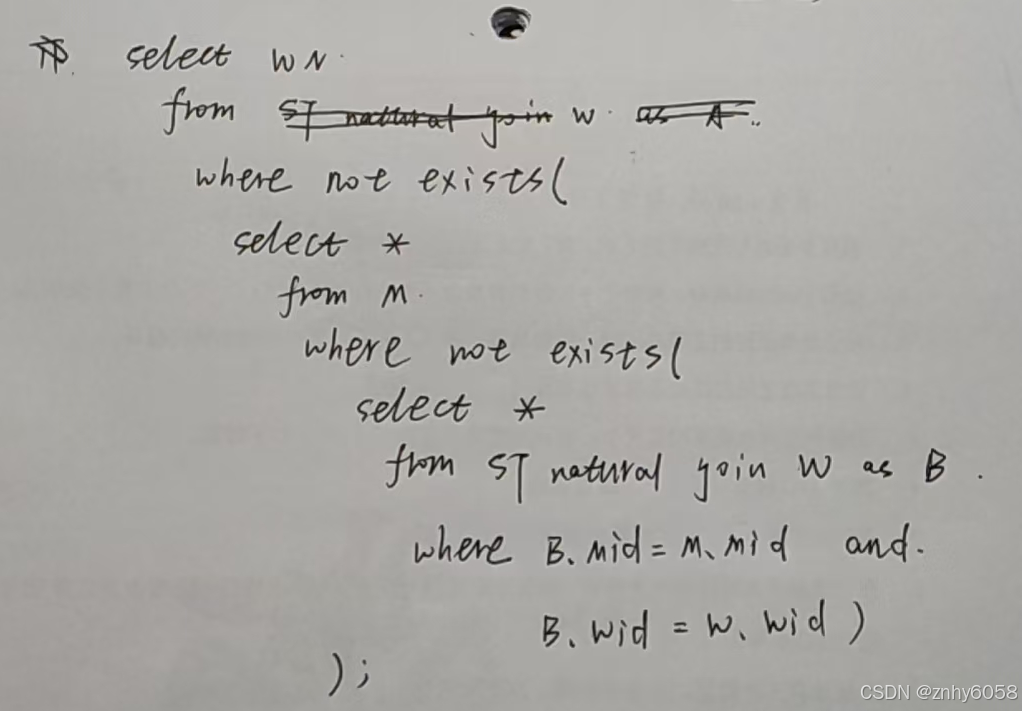 select WN.
from ST natural yoin W. as A..
where not exists(
select *
from M.
where not exists(
select *
from ST natural yoin W as B .
where B.mid = M.mid and.
B.wid = W.wid )
);
CSDN @znhy6058